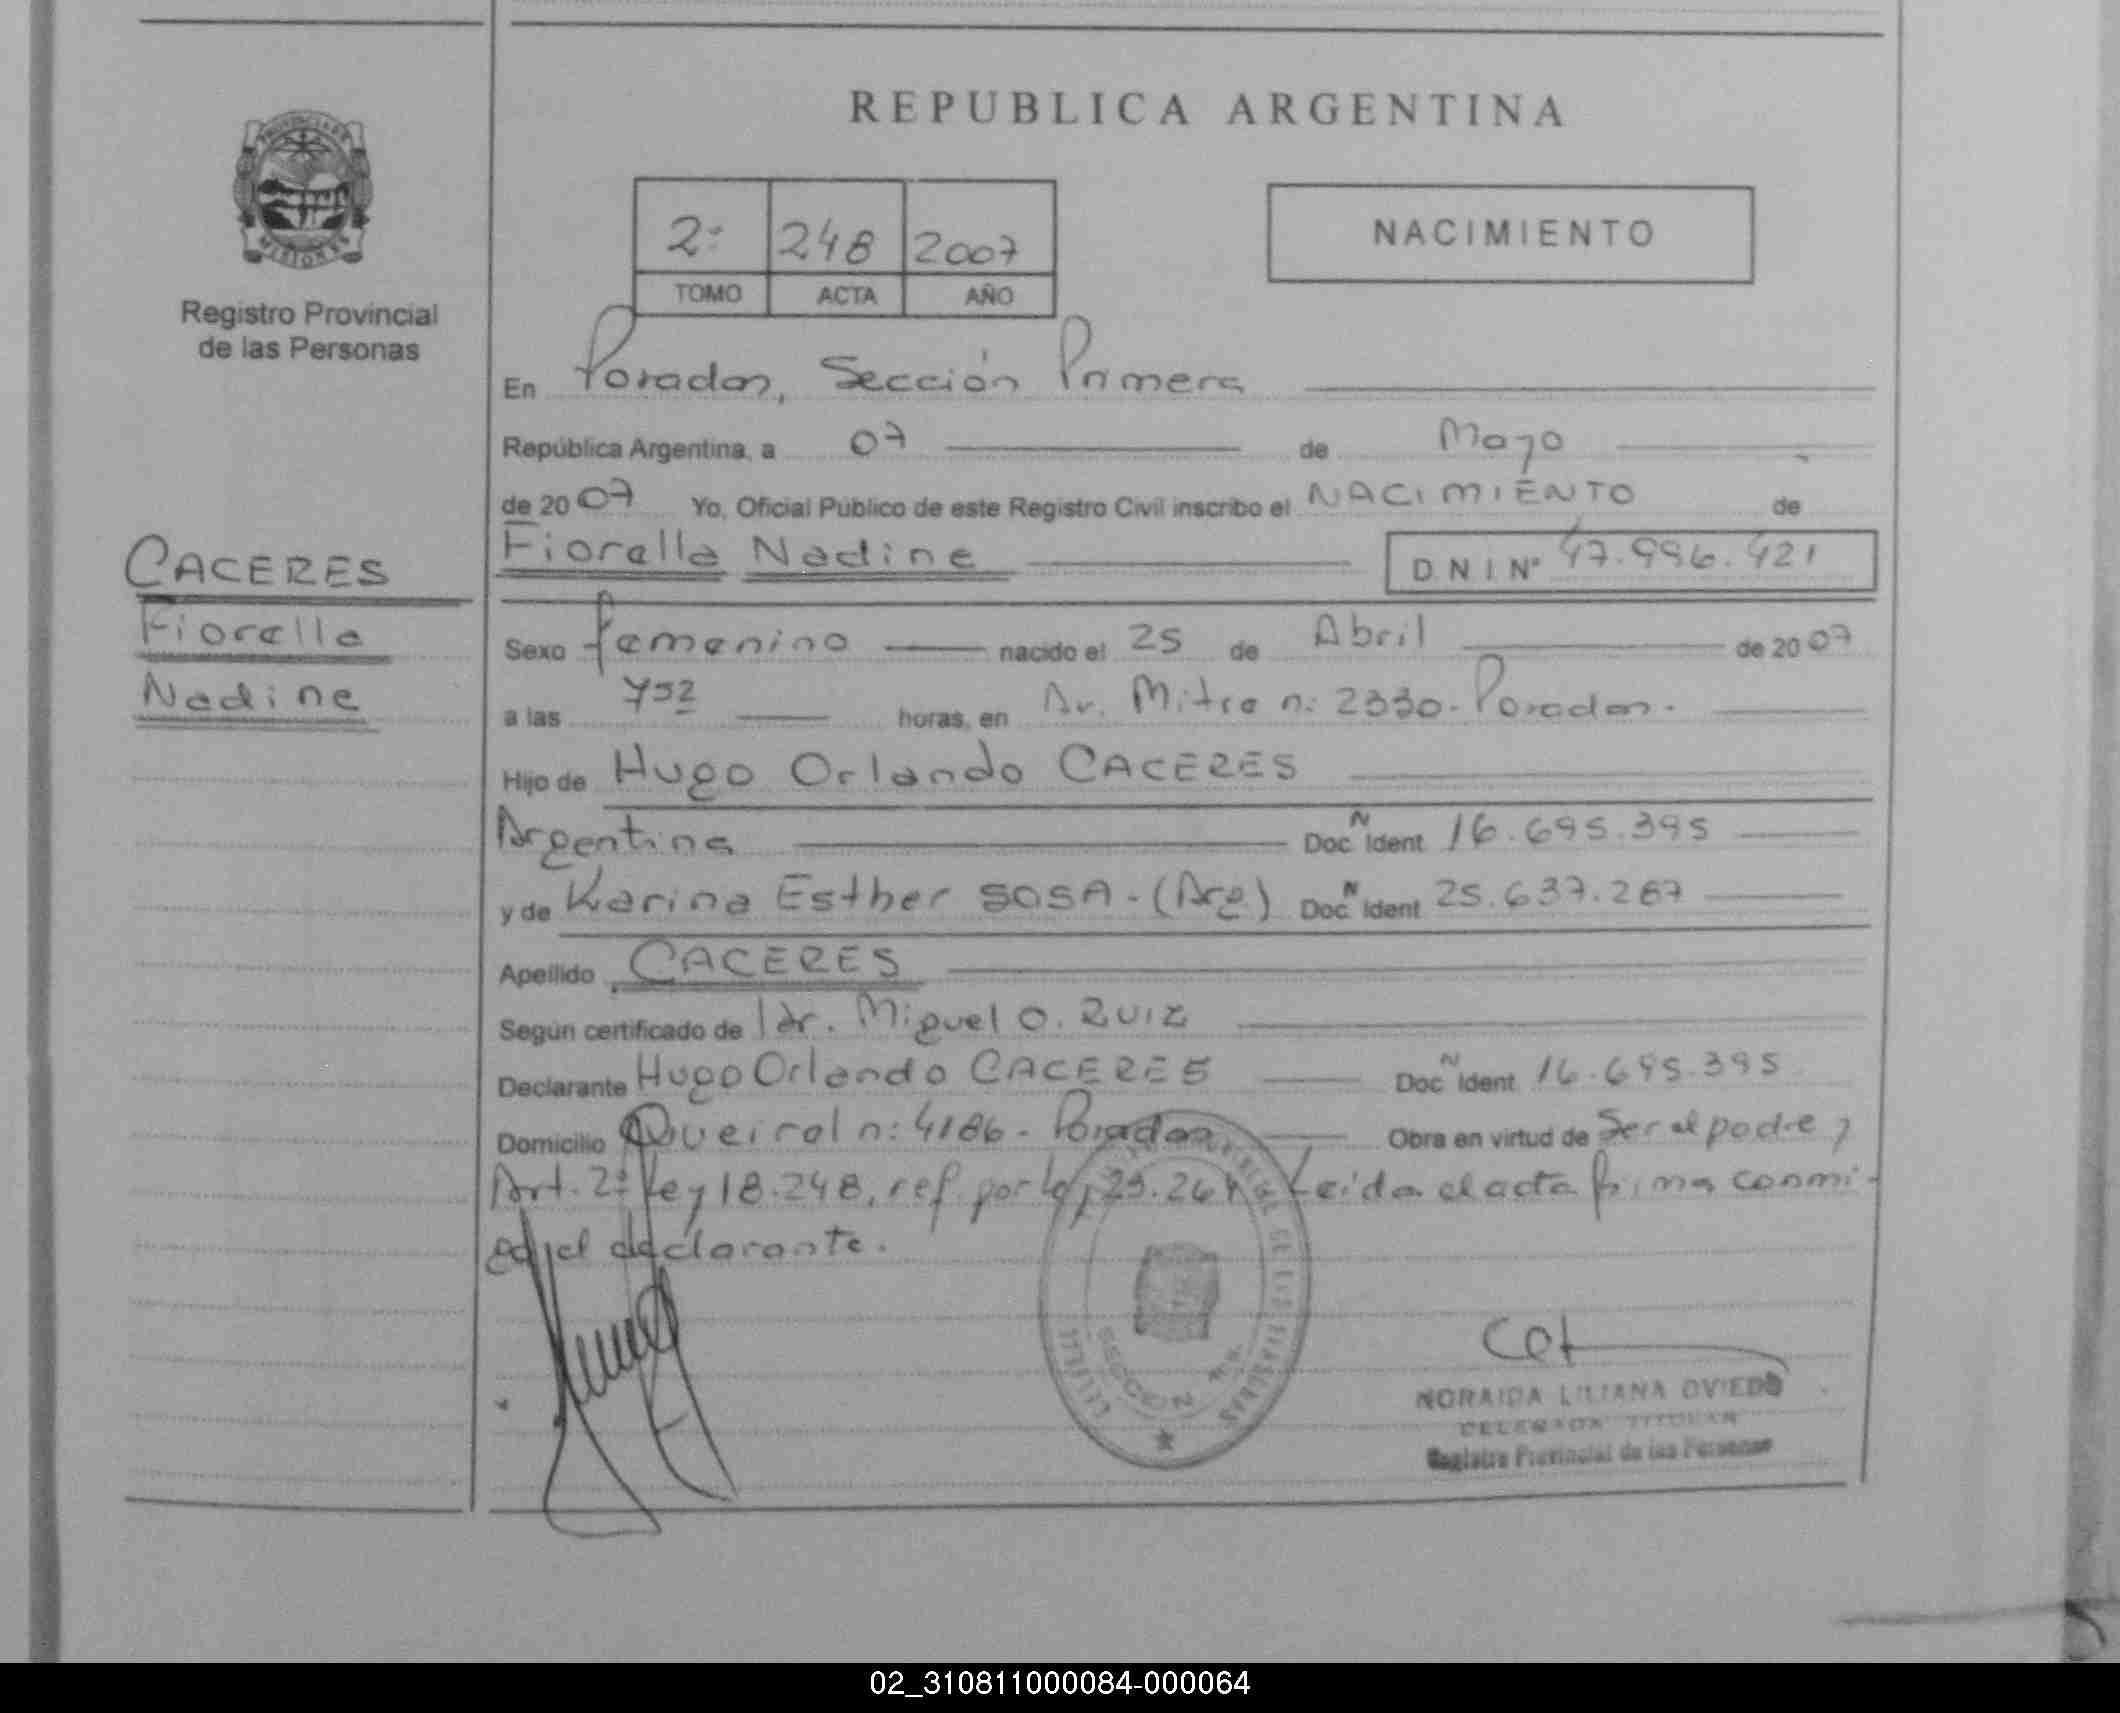 REPUBLICA ARGENTINA
PROVINCIA DE
MISIONES
Registro Provincial
de las Personas
2º 248 2007
TOMO ACTA AÑO
NACIMIENTO
En Posadas, Sección Primera
República Argentina, a 07 de Mayo
de 2007 Yo, Oficial Público de este Registro Civil inscribo el NACIMIENTO de
CACERES
Fiorella
Nadine
Fiorella Nadine D N I Nº 47.996.421
Sexo femenino nacido el 25 de Abril de 2007
a las 752 horas, en Av. Mitre n: 2330. Posadas.
Hijo de Hugo Orlando CACERES
Argentina Doc N Ident 16.695.395
y de Karina Esther SOSA - (Arg) Doc N Ident 25.637.287
Apellido CACERES
Según certificado de Dr. Miguel O. RUIZ
Declarante Hugo Orlando CACERES Doc N Ident 16.695.395
Domicilio Queirel n: 4186 - Posadas Obra en virtud de Ser el padre y
Art. 2º Ley 18.248, ref. por Ley 23.264 Leida el acta firma conmi-
go el declarante.
SECCION
NORAIDA LILIANA OVIEDO
DELEGADA TITULAR
Registro Provincial de las Personas
02_310811000084-000064